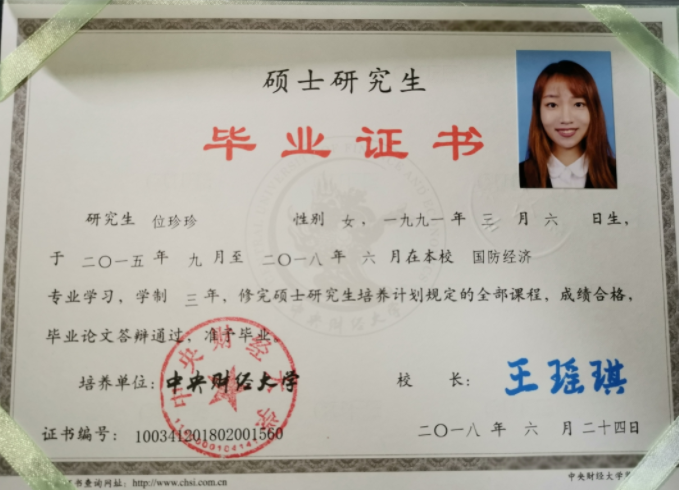 硕士研究生
毕业证书
研究生 位珍珍 性别 女，一九九一年 三 月 六 日生，
于 二〇一五年 九 月至 二〇一八年 六 月在本校 国防经济
专业学习，学制 三 年，修完硕士研究生培养计划规定的全部课程，成绩合格，
毕业论文答辩通过，准予毕业。
培养单位：中央财经大学 校 长：王瑶琪
中央财经大学
证书编号：100341201802001560 二〇一八年 六 月 二十四日
书查询网址：http://www.chsi.com.cn 中央财经大学